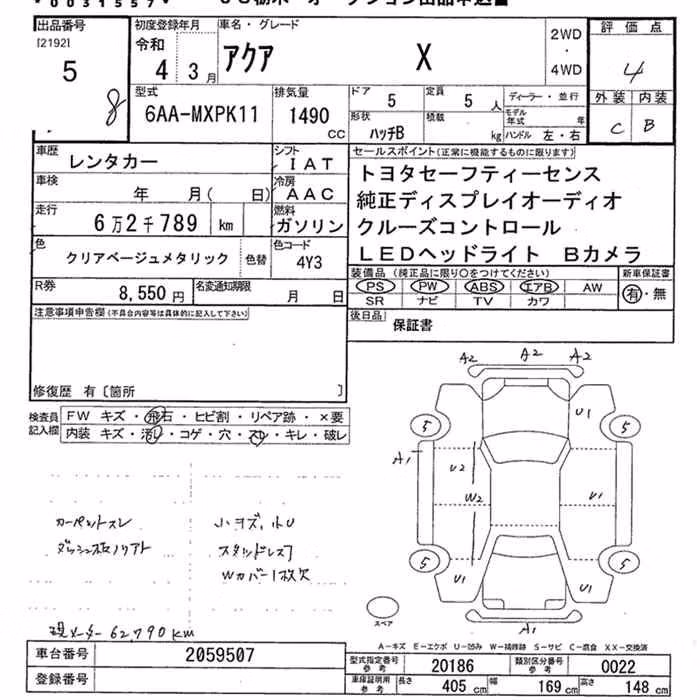 *0031557*
出品番号
[2192]
5
8
初度登録年月
令和
4 3月
車名・グレード
アクア X
2WD
・
4WD
評価点
4
外装 内装
C B
型式
6AA-MXPK11
排気量
1490
CC
ドア
5
定員
5 人
形状
ハッチB
積載
kg
ディーラー・並行
モデル年式 年
ハンドル 左・右
車歴
レンタカー
シフト
IAT
車検
年 月( 日)
冷房
AAC
走行
6万2千789 km
燃料
ガソリン
色
クリアベージュメタリック
色替
色コード
4Y3
R券
8,550円
名変通知期限
月 日
セールスポイント(正常に機能するものに限ります)
トヨタセーフティーセンス
純正ディスプレイオーディオ
クルーズコントロール
LEDヘッドライト Bカメラ
装備品(純正品に限り○をつけてください)
PS PW ABS エアB AW
SR ナビ TV カワ
新車保証書
有・無
後日品
保証書
注意事項申告欄(不具合内容等は具体的に記入して下さい)
修復歴 有〔箇所 〕
検査員
記入欄
FW キズ・飛石・ヒビ割・リペア跡・×要
内装 キズ・汚レ・コゲ・穴・スレ・キレ・破レ
カーペットスレ
小キズ、小U
スタッドレス
Wカバー1枚欠
現メーター 62,790km
A2 A2 A2
U1
5
5
A1
U2
W2
U1
5
5
U1
U1
A1
スペア
A-キズ E-エクボ U-凹み W-補修跡 S-サビ C-腐食 XX-交換済
車台番号
2059507
登録番号
型式指定番号
参考
20186
類別区分番号
参考
0022
車庫証明用
参考
長さ
405 cm
幅
169 cm
高さ
148 cm